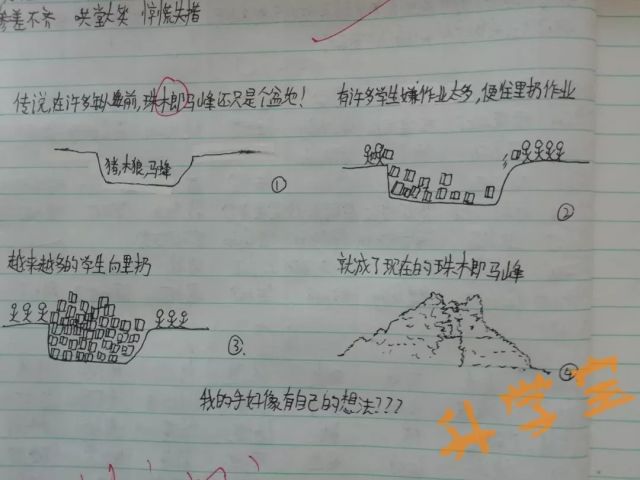 参差不齐 哄堂大笑 惊慌失措
传说,在许多年以前,珠木郎马峰还只是个盆地!
有许多学生嫌作业太多,便往里扔作业
猪,木狼,马峰
①
②
越来越多的学生向里扔
就成了现在的珠木郎马峰
③
④
我的手好像有自己的想法???
升学宝